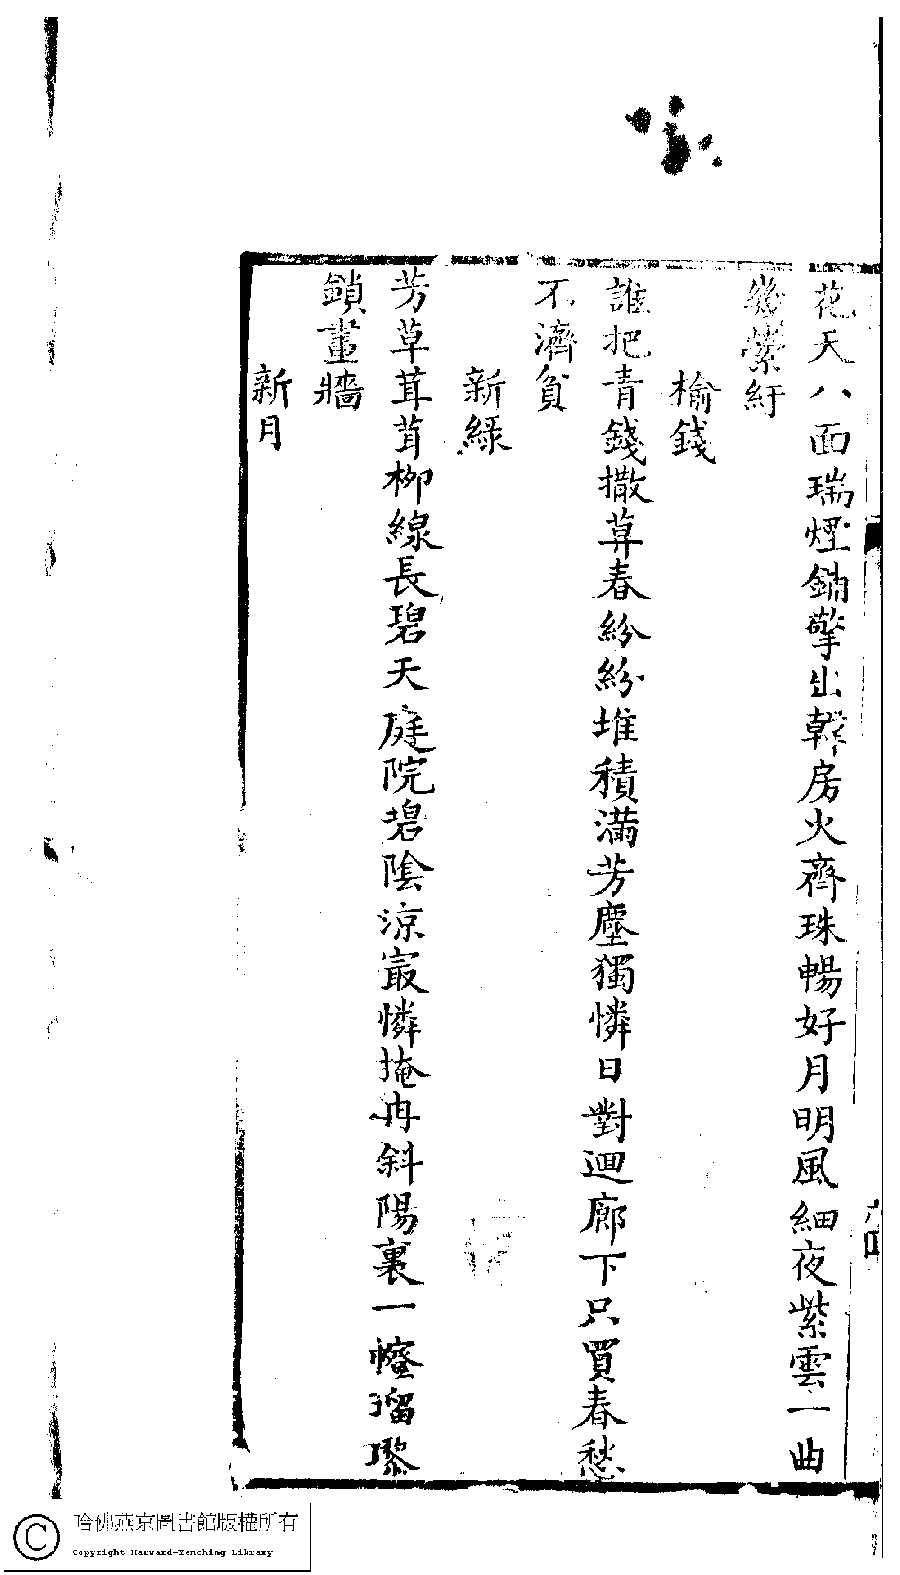 花天八面瑞煙銷擎出韓房火齊珠暢好月明風細夜紫雲一曲
幾縈紆
榆錢
誰把青錢撒算春紛紛堆積滿芳塵獨憐日對迴廊下只買春愁
不濟貧
新綠
芳草茸茸柳線長碧天庭院碧陰涼寂憐掩冉斜陽裏一㡡瑠瓈
鎖畫牆
新月
哈佛燕京圖書館版權所有
Copyright Harvard-Yenching Library